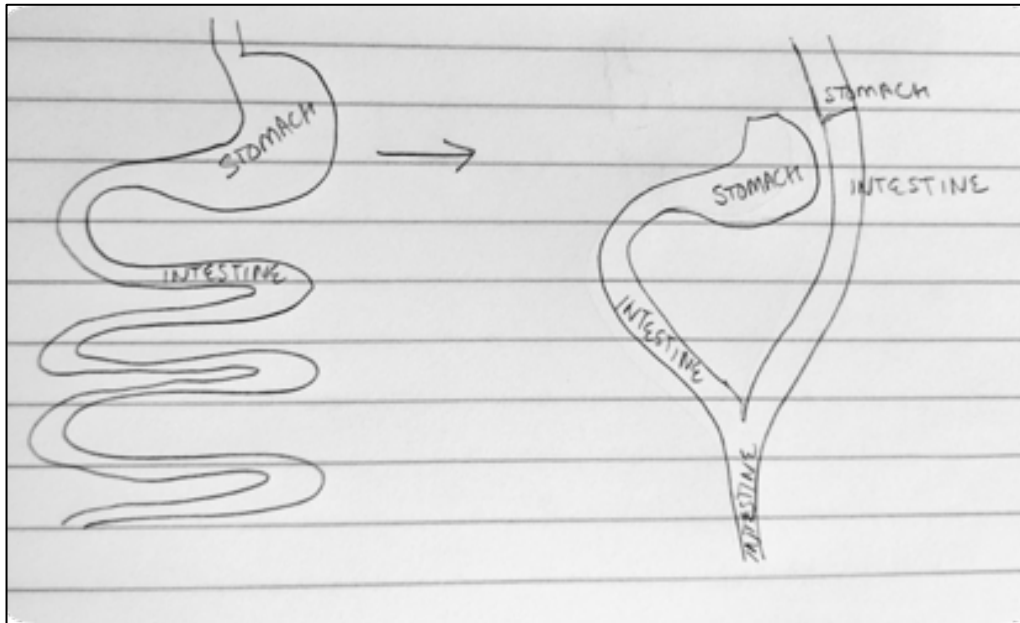 STOMACH
INTESTINE
STOMACH
STOMACH
INTESTINE
INTESTINE
INTESTINE